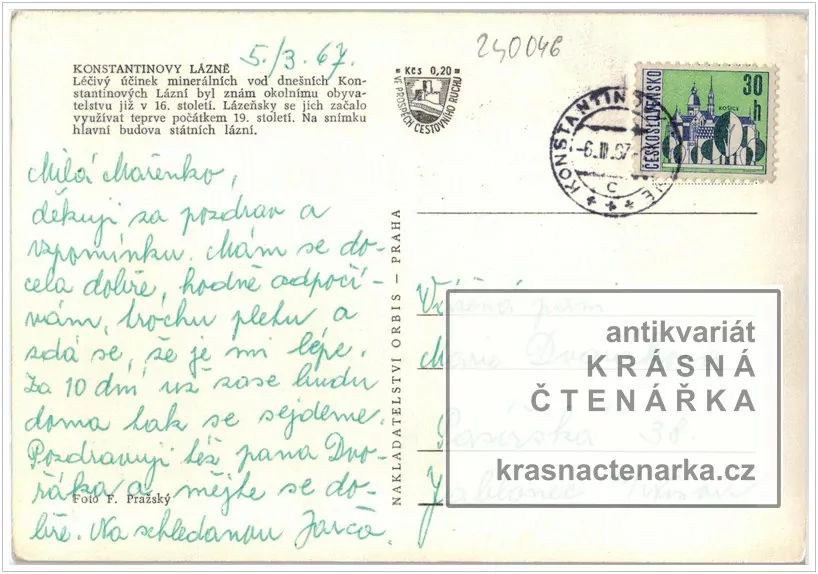 5./3. 67.
240046
KONSTANTINOVY LÁZNĚ
Léčivý účinek minerálních vod dnešních Kon-
stantinových Lázní byl znám okolnímu obyva-
telstvu již v 16. století. Lázeňsky se jich začalo
využívat teprve počátkem 19. století. Na snímku
hlavní budova státních lázní.
Kčs 0,20
VE PROSPĚCH CESTOVNÍHO RUCHU
ČESKOSLOVENSKO
30 h
KOŠICE
KONSTANTINOV
-6.III.67-
C
Milá Mařenko,
děkuji za pozdrav a
vzpomínku. Mám se do-
cela dobře, hodně odpočí-
vám, trochu pletu a
zdá se, že je mi lépe.
Za 10 dní už zase budu
doma tak se sejdeme.
Pozdravuji též pana Dvo-
řáka a mějte se do-
bře. Na shledanou Jarča.
Foto F. Pražský
NAKLADATELSTVÍ ORBIS — PRAHA
Vážená paní
Marie
Pasířská 38.
Jablonec
antikvariát
KRÁSNÁ
ČTENÁŘKA
krasnactenarka.cz